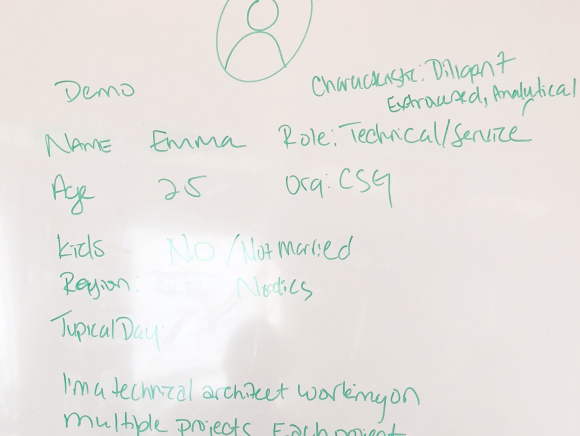 Characteristic: Diligent
Demo
Extraversed, Analytical
NAME Emma Role: Technical/Service
Age 25 Org: CSG
Kids No /Not Married
Region: Nordics
Typical Day
I'm a technical architect working on
multiple projects. Each project